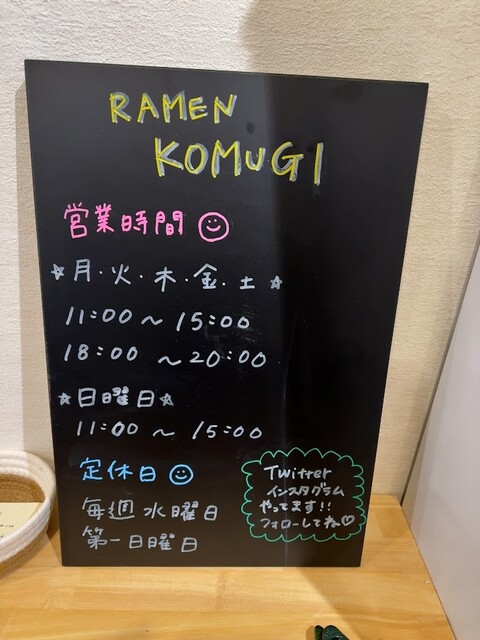 RAMEN
KOMUGI
営業時間
☆月・火・木・金・土☆
11:00～15:00
18:00～20:00
☆日曜日☆
11:00～15:00
定休日
毎週水曜日
第一日曜日
Twitter
インスタグラム
やってます!!
フォローしてね♡